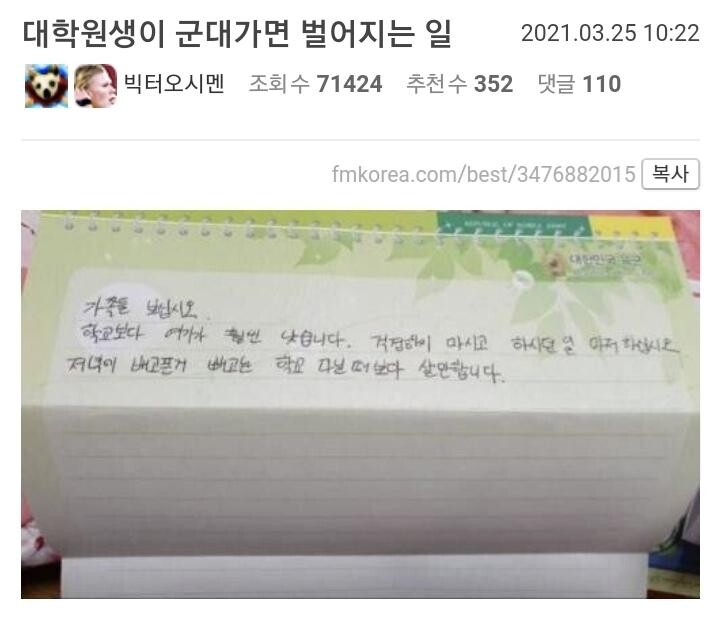 대학원생이 군대가면 벌어지는 일
2021.03.25 10:22
빅터오시멘 조회수 71424 추천수 352 댓글 110
fmkorea.com/best/3476882015 복사
REPUBLIC OF KOREA ARMY
대한민국 육군
가족들 보십시오.
학교보다 여기가 훨씬 낫습니다. 걱정하지 마시고 하시던 일 마저 하십시오
저녁에 배고픈거 빼고는 학교 다닐 때보다 살만합니다.